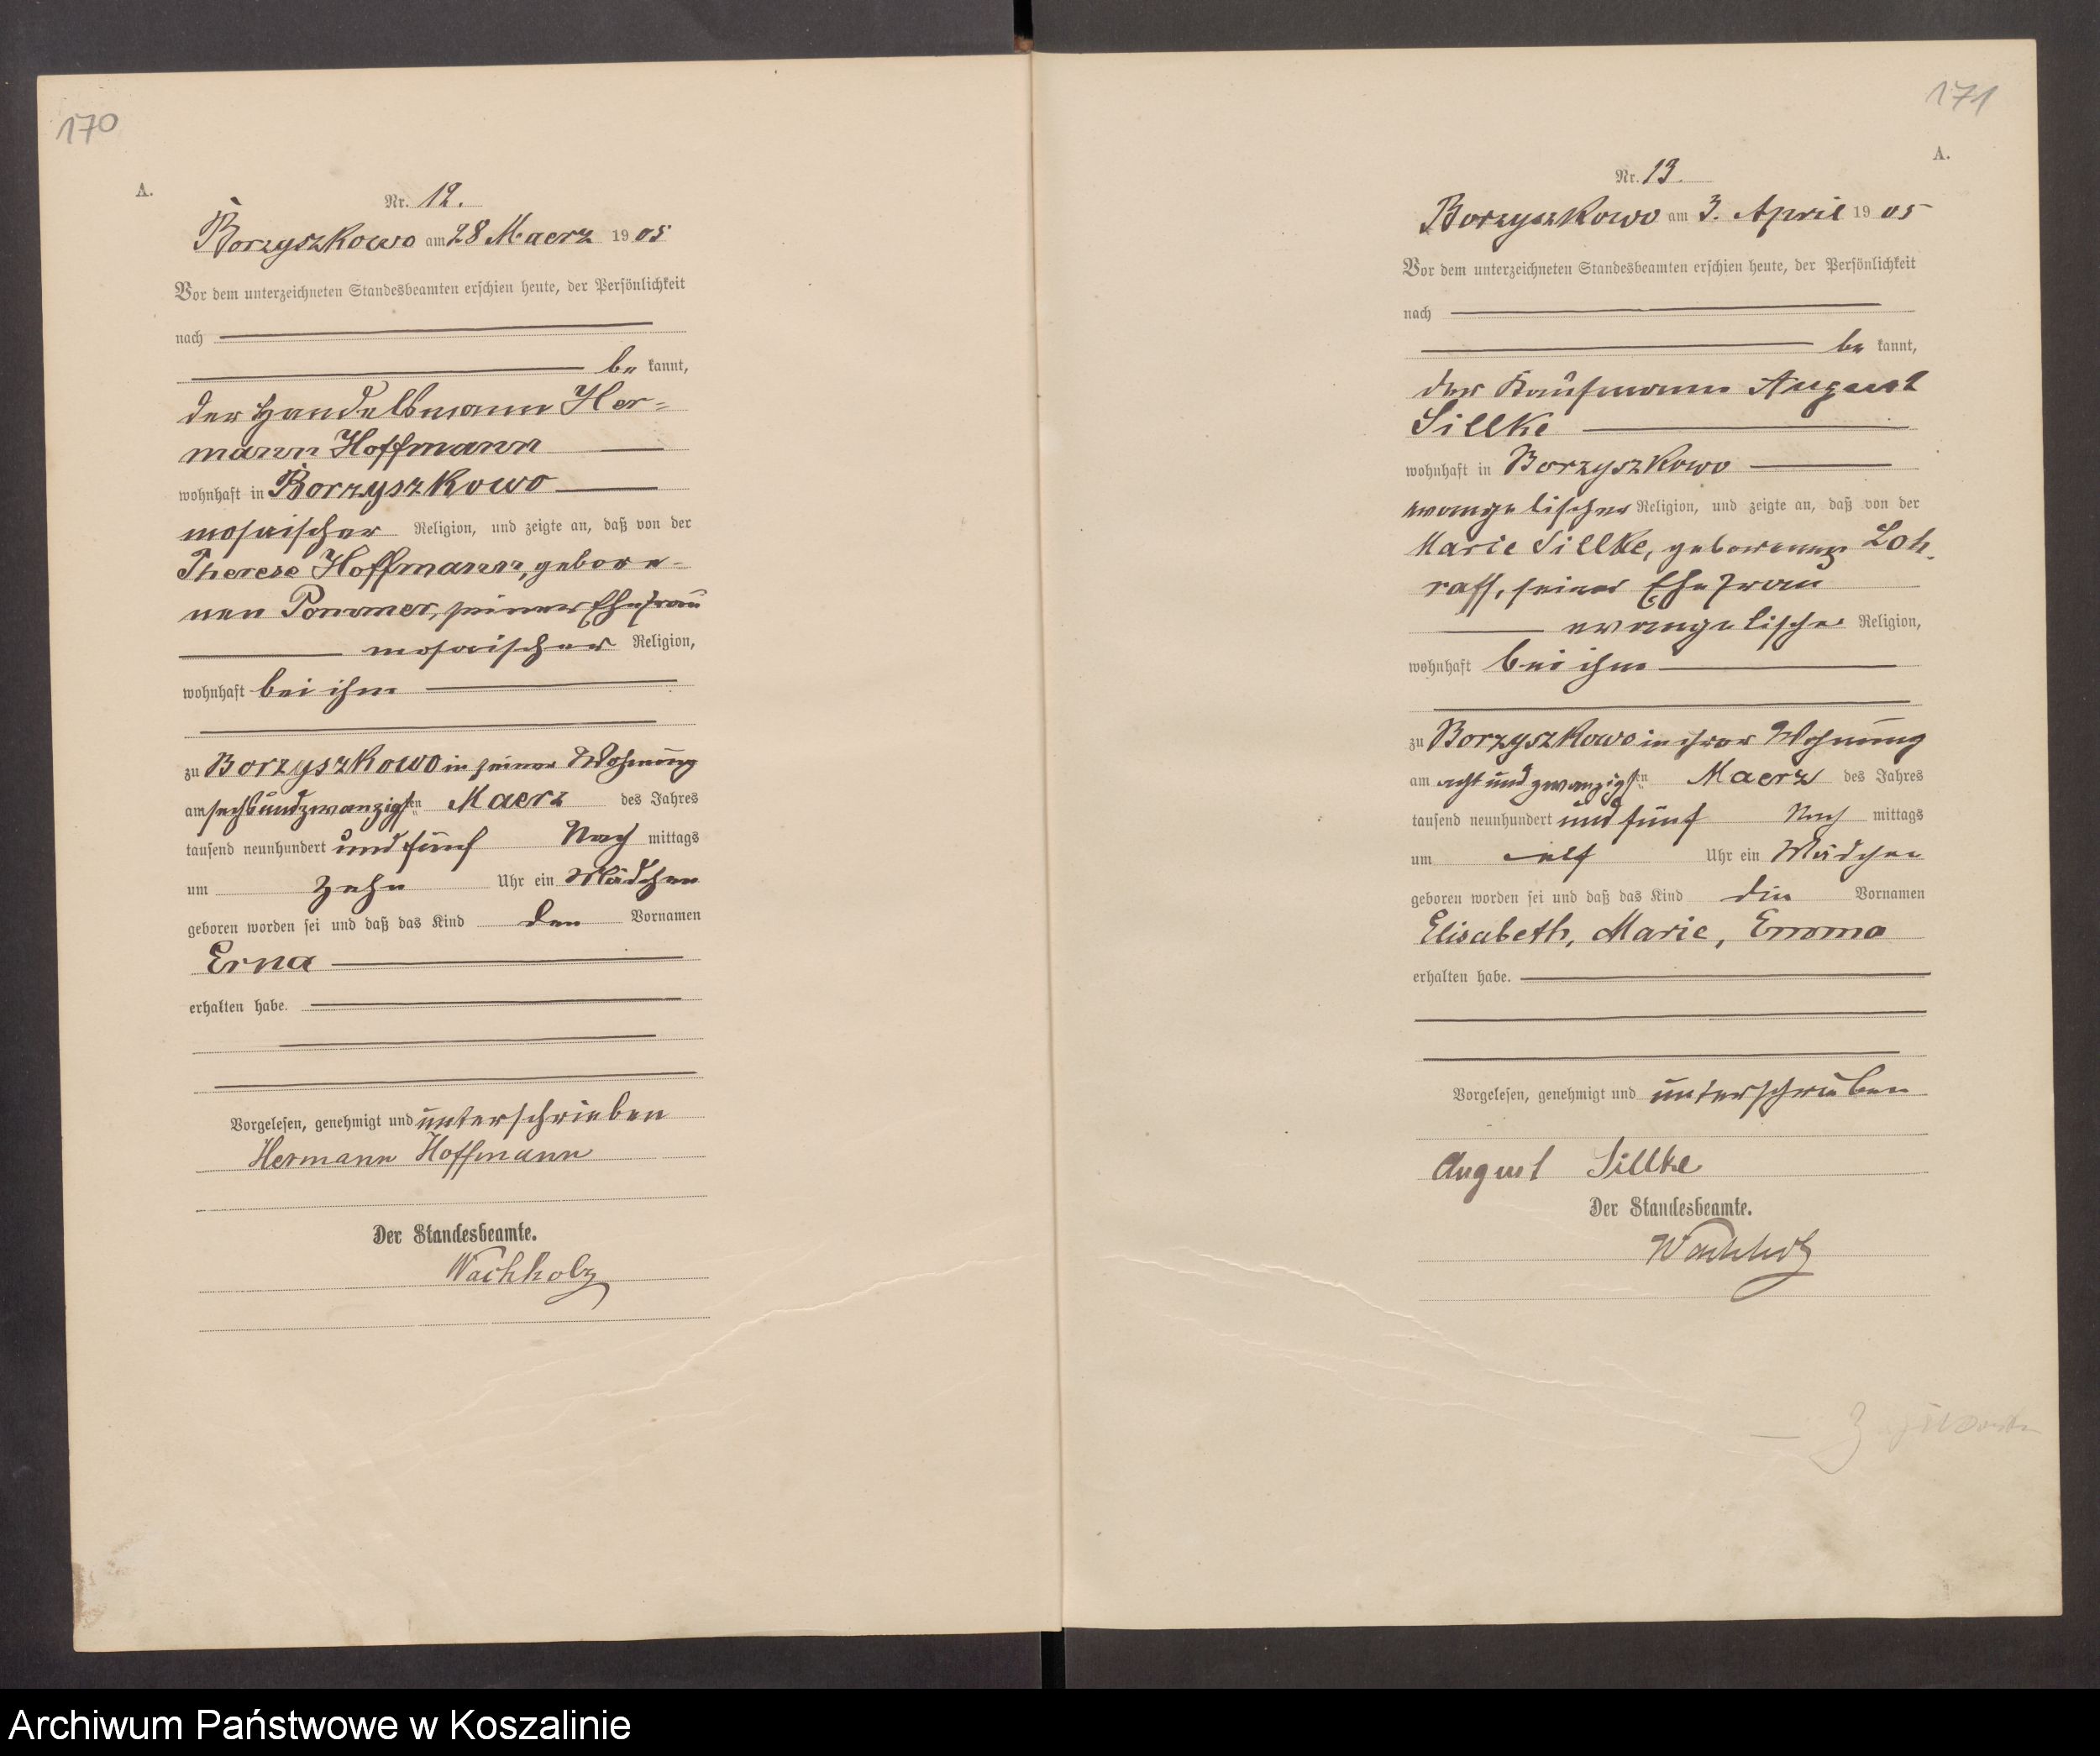 170
A.
Nr. 12.
Borzyszkowo am 28 Maerz 1905
Vor dem unterzeichneten Standesbeamten erschien heute, der Persönlichkeit
nach
be kannt,
der Handelsmann Her-
mann Hoffmann
wohnhaft in Borzyszkowo
mosaischer Religion, und zeigte an, daß von der
Therese Hoffmann, gebore-
nen Pommer, seiner Ehefrau
mosaischer Religion,
wohnhaft bei ihm
zu Borzyszkowo in seiner Wohnung
am sechsundzwanzigsten Maerz des Jahres
tausend neunhundert und fünf Nach mittags
um zehn Uhr ein Mädchen
geboren worden sei und daß das Kind den Vornamen
Erna
erhalten habe.
Vorgelesen, genehmigt und unterschrieben
Hermann Hoffmann
Der Standesbeamte.
Wachholz
171
A.
Nr. 13.
Borzyszkowo am 3. April 1905
Vor dem unterzeichneten Standesbeamten erschien heute, der Persönlichkeit
nach
be kannt,
der Kaufmann August
Sillke
wohnhaft in Borzyszkowo
evangelischer Religion, und zeigte an, daß von der
Marie Sillke, geborenen Loh-
raff, seiner Ehefrau
evangelischer Religion,
wohnhaft bei ihm
zu Borzyszkowo in ihrer Wohnung
am achtundzwanzigsten Maerz des Jahres
tausend neunhundert und fünf Nach mittags
um elf Uhr ein Mädchen
geboren worden sei und daß das Kind die Vornamen
Elisabeth, Marie, Emma
erhalten habe.
Vorgelesen, genehmigt und unterschrieben
August Sillke
Der Standesbeamte.
Wachholz
Archiwum Państwowe w Koszalinie